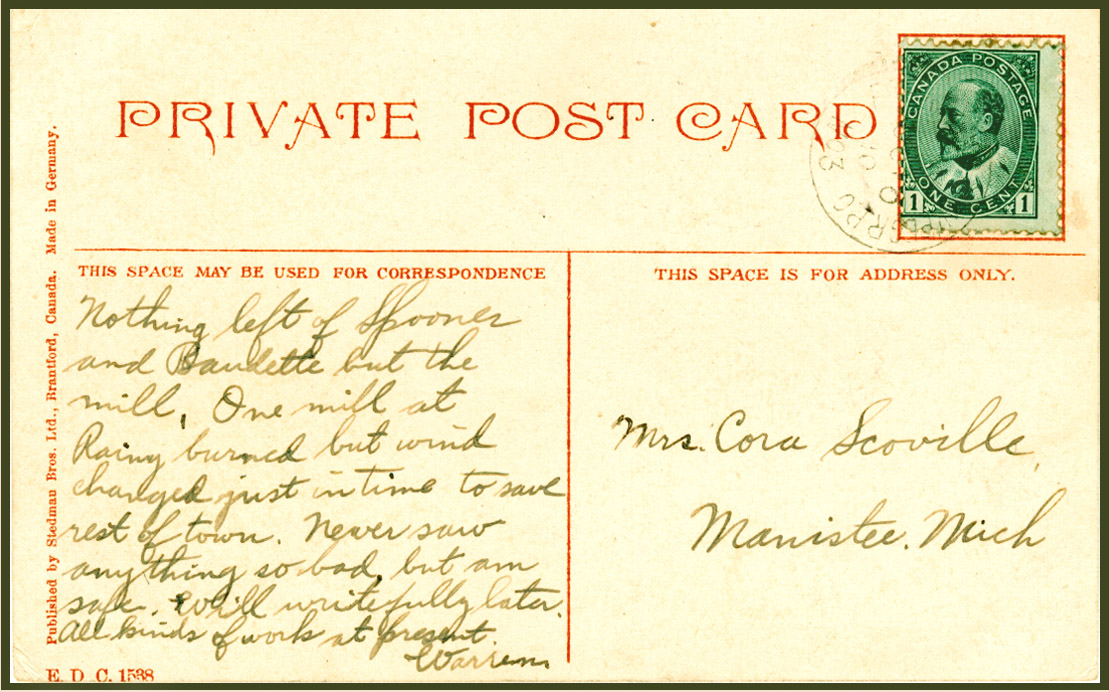 PRIVATE POST CARD
CANADA POSTAGE
ONE CENT
1 1
R.P.O.
10
03
Published by Stedman Bros. Ltd., Brantford, Canada. Made in Germany.
THIS SPACE MAY BE USED FOR CORRESPONDENCE
Nothing left of Spooner
and Baudette but the
mill. One mill at
Rainy burned but wind
changed just in time to save
rest of town. Never saw
anything so bad, but am
safe. Will write fully later.
All kinds of work at present.
Warren
THIS SPACE IS FOR ADDRESS ONLY.
Mrs. Cora Scoville,
Manistee, Mich
E. D. C. 1538